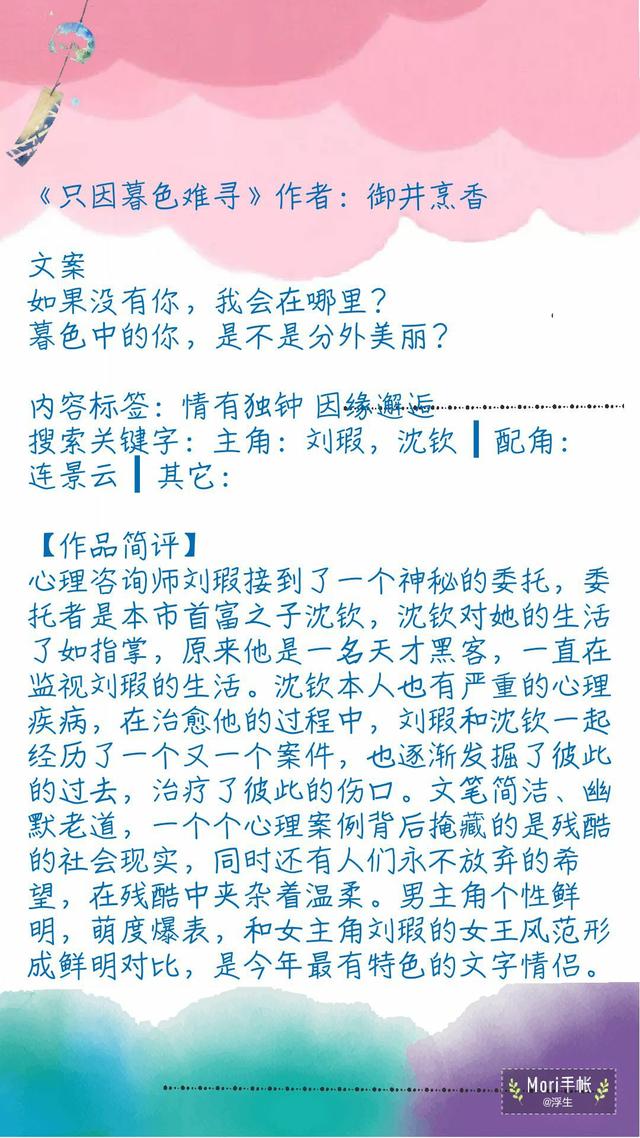 《只因暮色难寻》作者：御井烹香
文案
如果没有你，我会在哪里？
暮色中的你，是不是分外美丽？
内容标签：情有独钟 因缘邂逅
搜索关键字：主角：刘瑕，沈钦 ┃ 配角：
连景云 ┃ 其它：
【作品简评】
心理咨询师刘瑕接到了一个神秘的委托，委
托者是本市首富之子沈钦，沈钦对她的生活
了如指掌，原来他是一名天才黑客，一直在
监视刘瑕的生活。沈钦本人也有严重的心理
疾病，在治愈他的过程中，刘瑕和沈钦一起
经历了一个又一个案件，也逐渐发掘了彼此
的过去，治疗了彼此的伤口。文笔简洁、幽
默老道，一个个心理案例背后掩藏的是残酷
的社会现实，同时还有人们永不放弃的希
望，在残酷中夹杂着温柔。男主角个性鲜
明，萌度爆表，和女主角刘瑕的女王风范形
成鲜明对比，是今年最有特色的文字情侣。
Mori手帐
@浮生